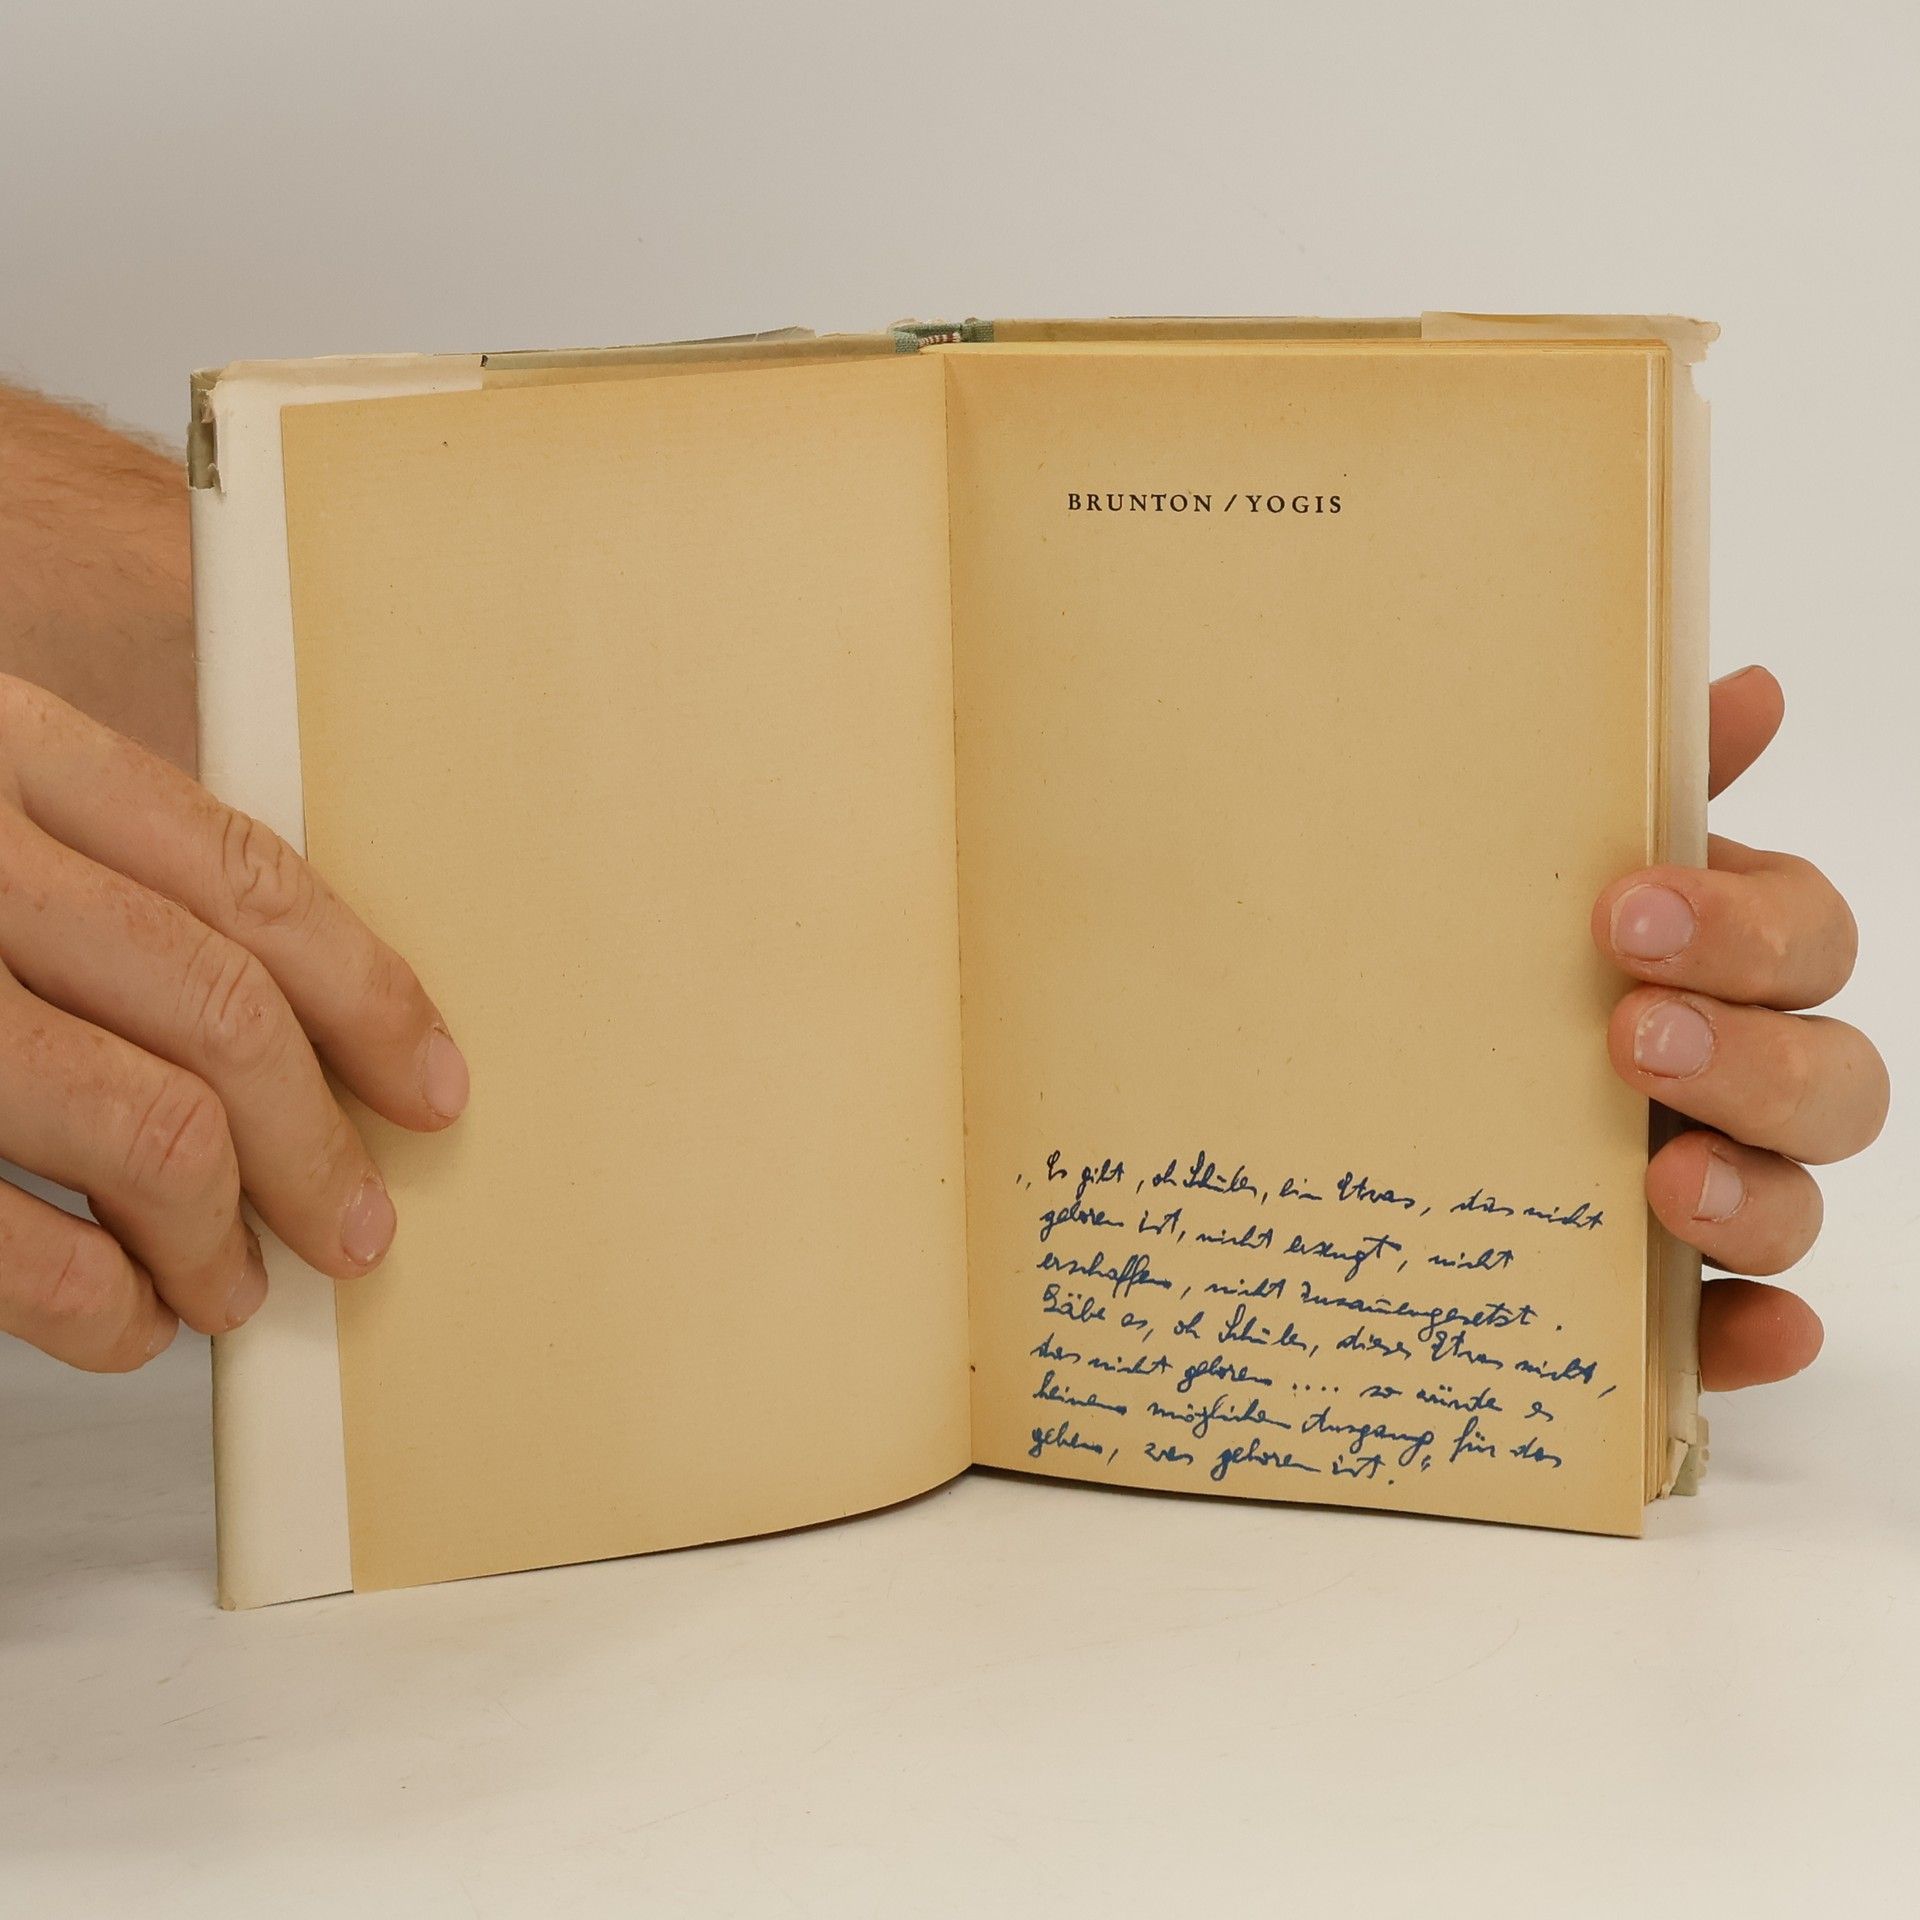 BRUNTON / YOGIS
„Es gibt, oh Schüler, ein Etwas, das nicht
geboren ist, nicht erzeugt, nicht
erschaffen, nicht zusam̅engesetzt.
Gäbe es, oh Schüler, dieses Etwas nicht,
das nicht geboren .... so würde es
keinen möglichen Ausgang für das
geben, was geboren ist."